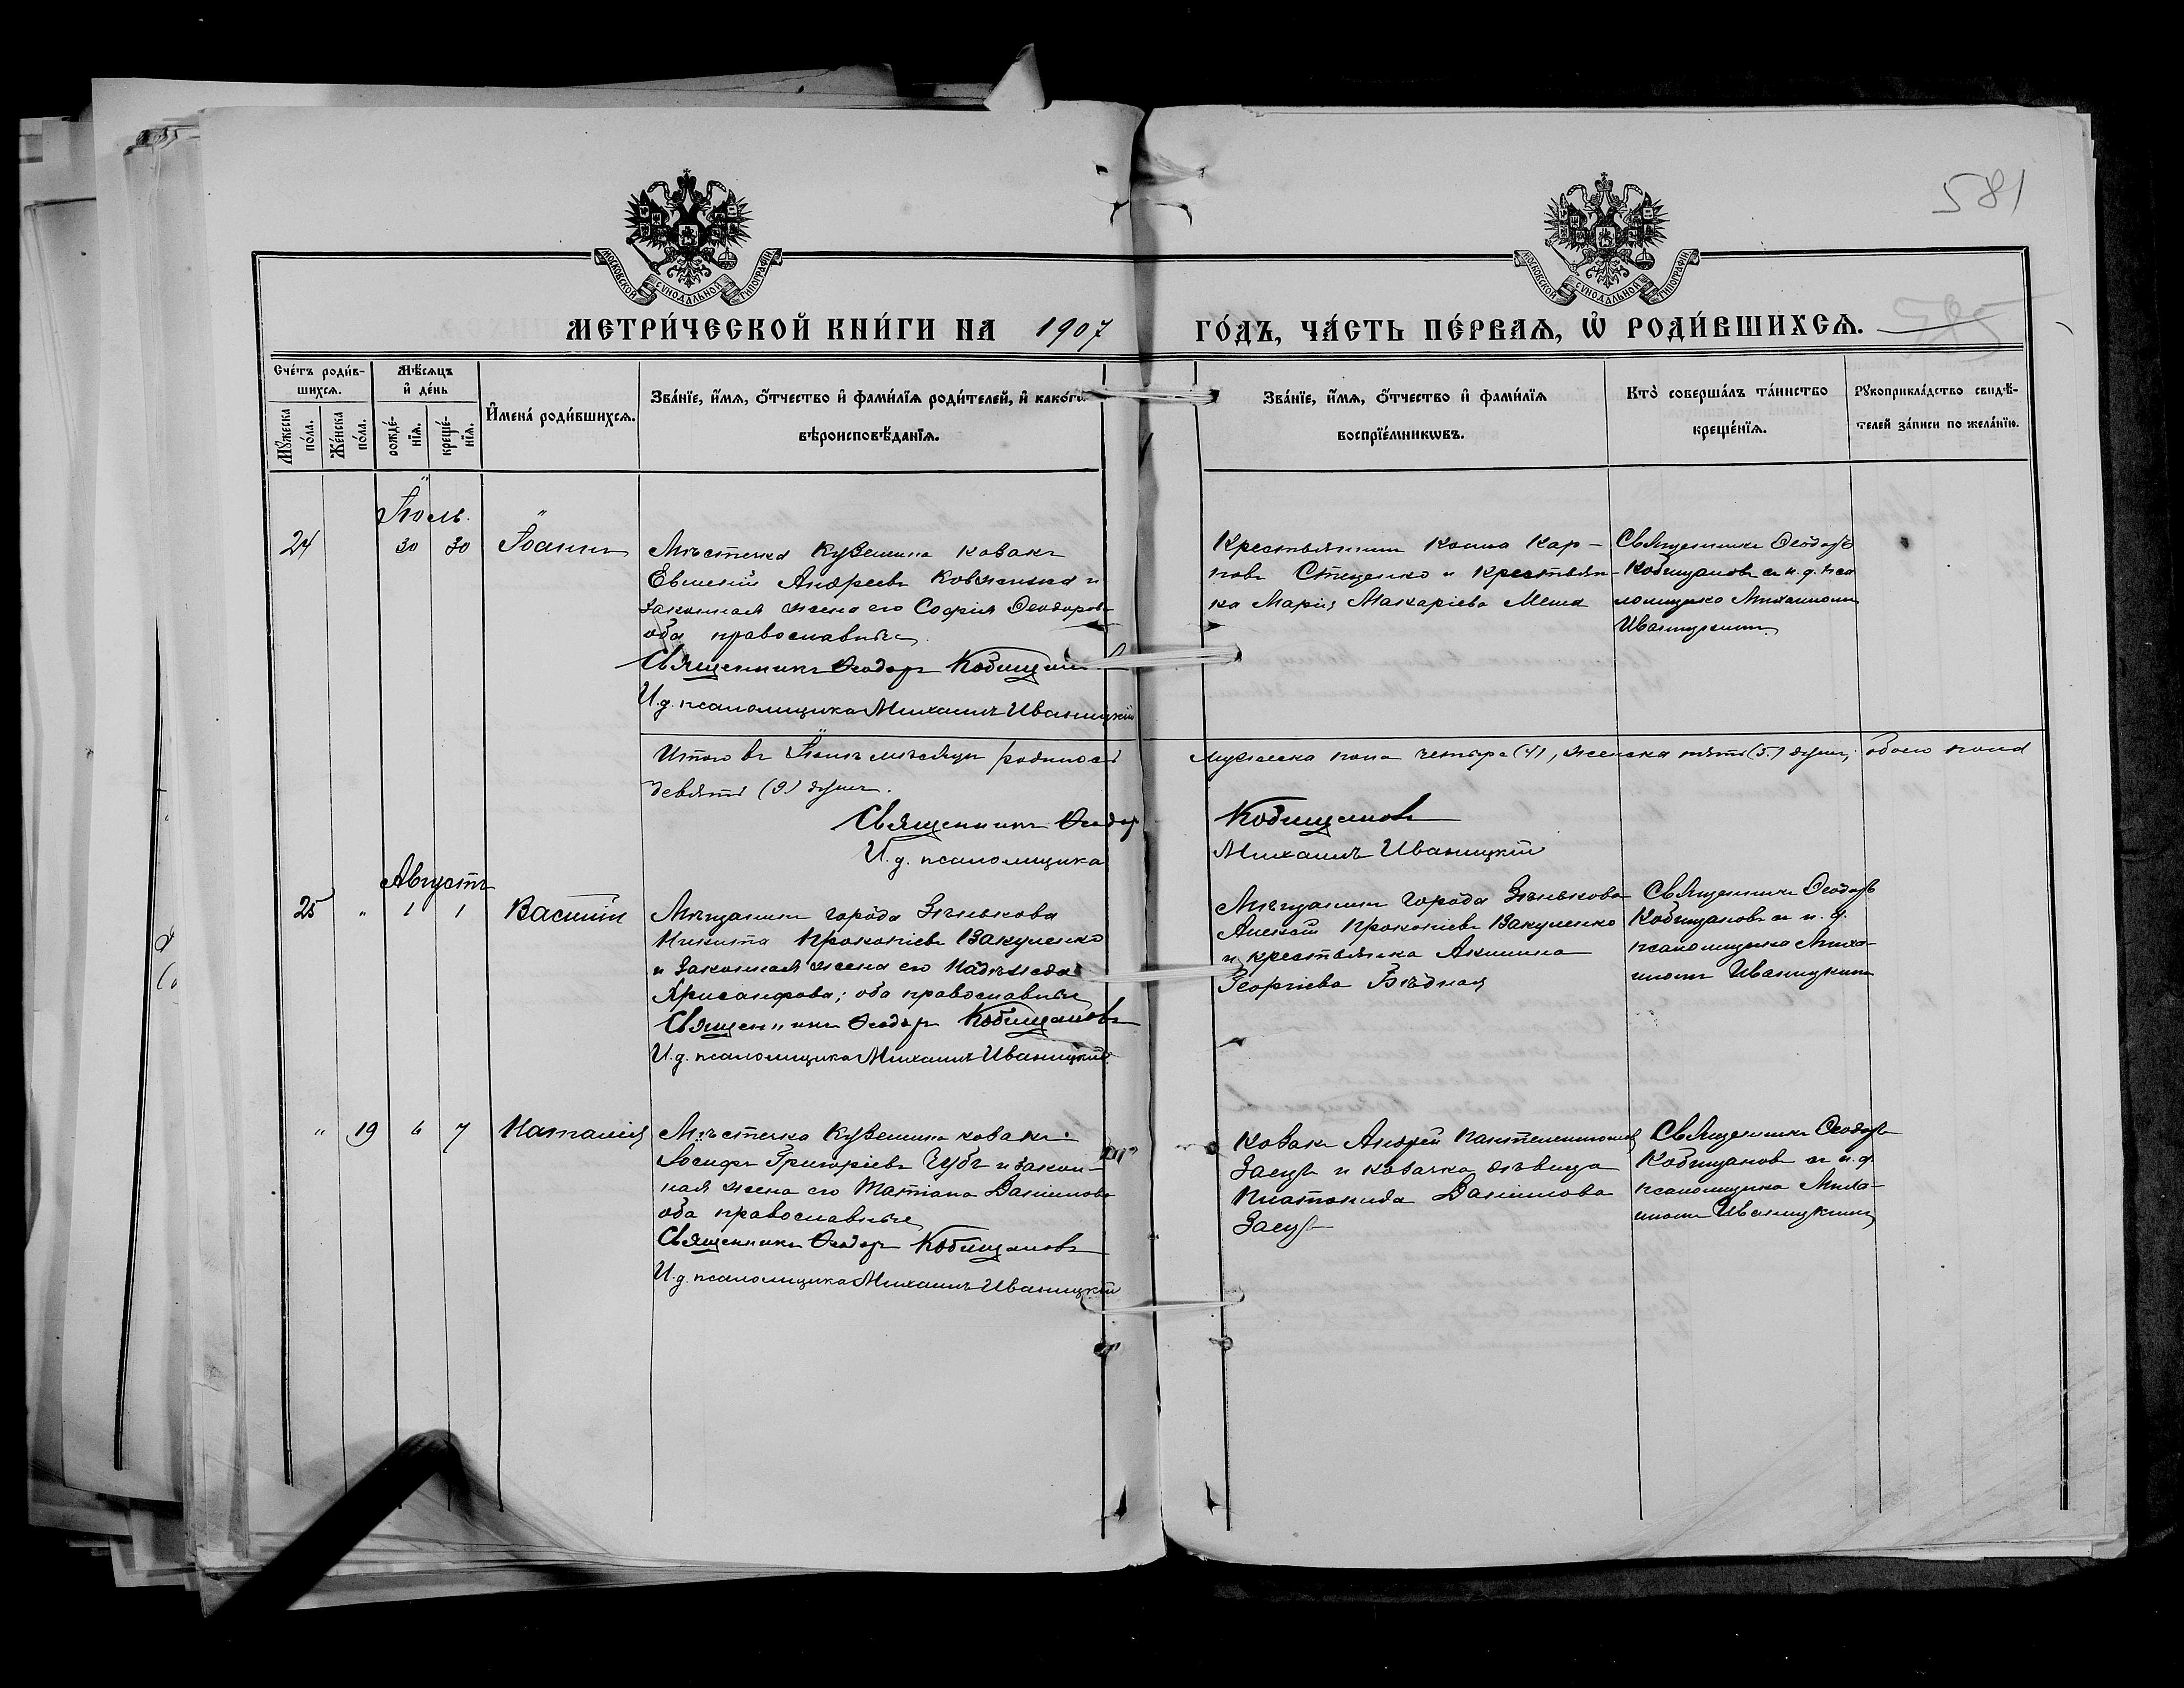 581
585
МОСКОВСКОЙ СУНОДАЛЬНОЙ ТИПОГРАФІИ
МОСКОВСКОЙ СУНОДАЛЬНОЙ ТИПОГРАФІИ
МЕТРИ́ЧЕСКОЙ КНИ́ГИ НА 1907 ГО́ДЪ, ЧА́СТЬ ПЕ́РВАѦ, Ѡ҆ РОДИ́ВШИХСѦ.
Сче́тъ роди́вшихсѧ.
Мꙋ́жеска по́ла.
Же́нска по́ла.
Мѣ́сѧцъ и҆ де́нь
рожде́нїѧ.
креще́нїѧ.
И҆мена́ роди́вшихсѧ.
Зва́нїе, и҆́мѧ, ѻ҆́тчество и҆ фами́лїѧ роди́телей, и҆ како́гѡ
вѣроисповѣ́данїѧ.
Зва́нїе, и҆́мѧ, ѻ҆́тчество и҆ фами́лїѧ
воспрїе́мникѡвъ.
Кто̀ соверша́лъ та́инство
креще́нїѧ.
Рꙋкоприкла́дство свидѣ́-
телей за́писи по жела́нїю.
Іюль.
24 30 30 Іоаннъ
Мѣстечка Куземина козакъ
Евменій Андреевъ Ковжижка и
законная жена его Софія Ѳеодоров
оба православные.
Священникъ Ѳеодоръ Кобищановъ
И. д. псаломщика Михаилъ Иваницкій
Крестьянинъ Косма Кар-
повъ Стеценко и крестьян-
ка Марія Макаріева
Священникъ Ѳеодоръ
Кобищановъ съ и. д. пса
ломщика Михаиломъ
Иваницкимъ
Итого въ Іюлѣ мѣсяцѣ родилось мужеска пола четыре (4), женска пять (5) душъ, обоего пола
девять (9) душъ.
Священникъ Ѳеодоръ Кобищановъ
И. д. псаломщика Михаилъ Иваницкій
Августъ
25 " 1 1 Василій
Мѣщанинъ города Зѣнькова
Никита Прокопіевъ Вакуленко
и законная жена его Надежда
Хрисанфова; оба православные
Священникъ Ѳеодоръ Кобищановъ
И. д. псаломщика Михаилъ Иваницкій
Мѣщанинъ города Зѣнькова
Алексѣй Прокопіевъ Вакуленко
и крестьянка Акилина
Георгіева Бѣдная
Священникъ Ѳеодоръ
Кобищановъ съ и. д.
псаломщика Миха-
иломъ Иваницкимъ
" 19 6 7 Наталія
Мѣстечка Куземина козакъ
Іосифъ Григоріевъ Чубъ и закон-
ная жена его Татіана Даніилова
оба православные
Священникъ Ѳеодоръ Кобищановъ
И. д. псаломщика Михаилъ Иваницкій
Козакъ Андрей Пантелеимоновъ
Засуля и козачка дѣвица
Платонида Даніилова
Засуля
Священникъ Ѳеодоръ
Кобищановъ съ и. д.
псаломщика Миха-
иломъ Иваницкимъ